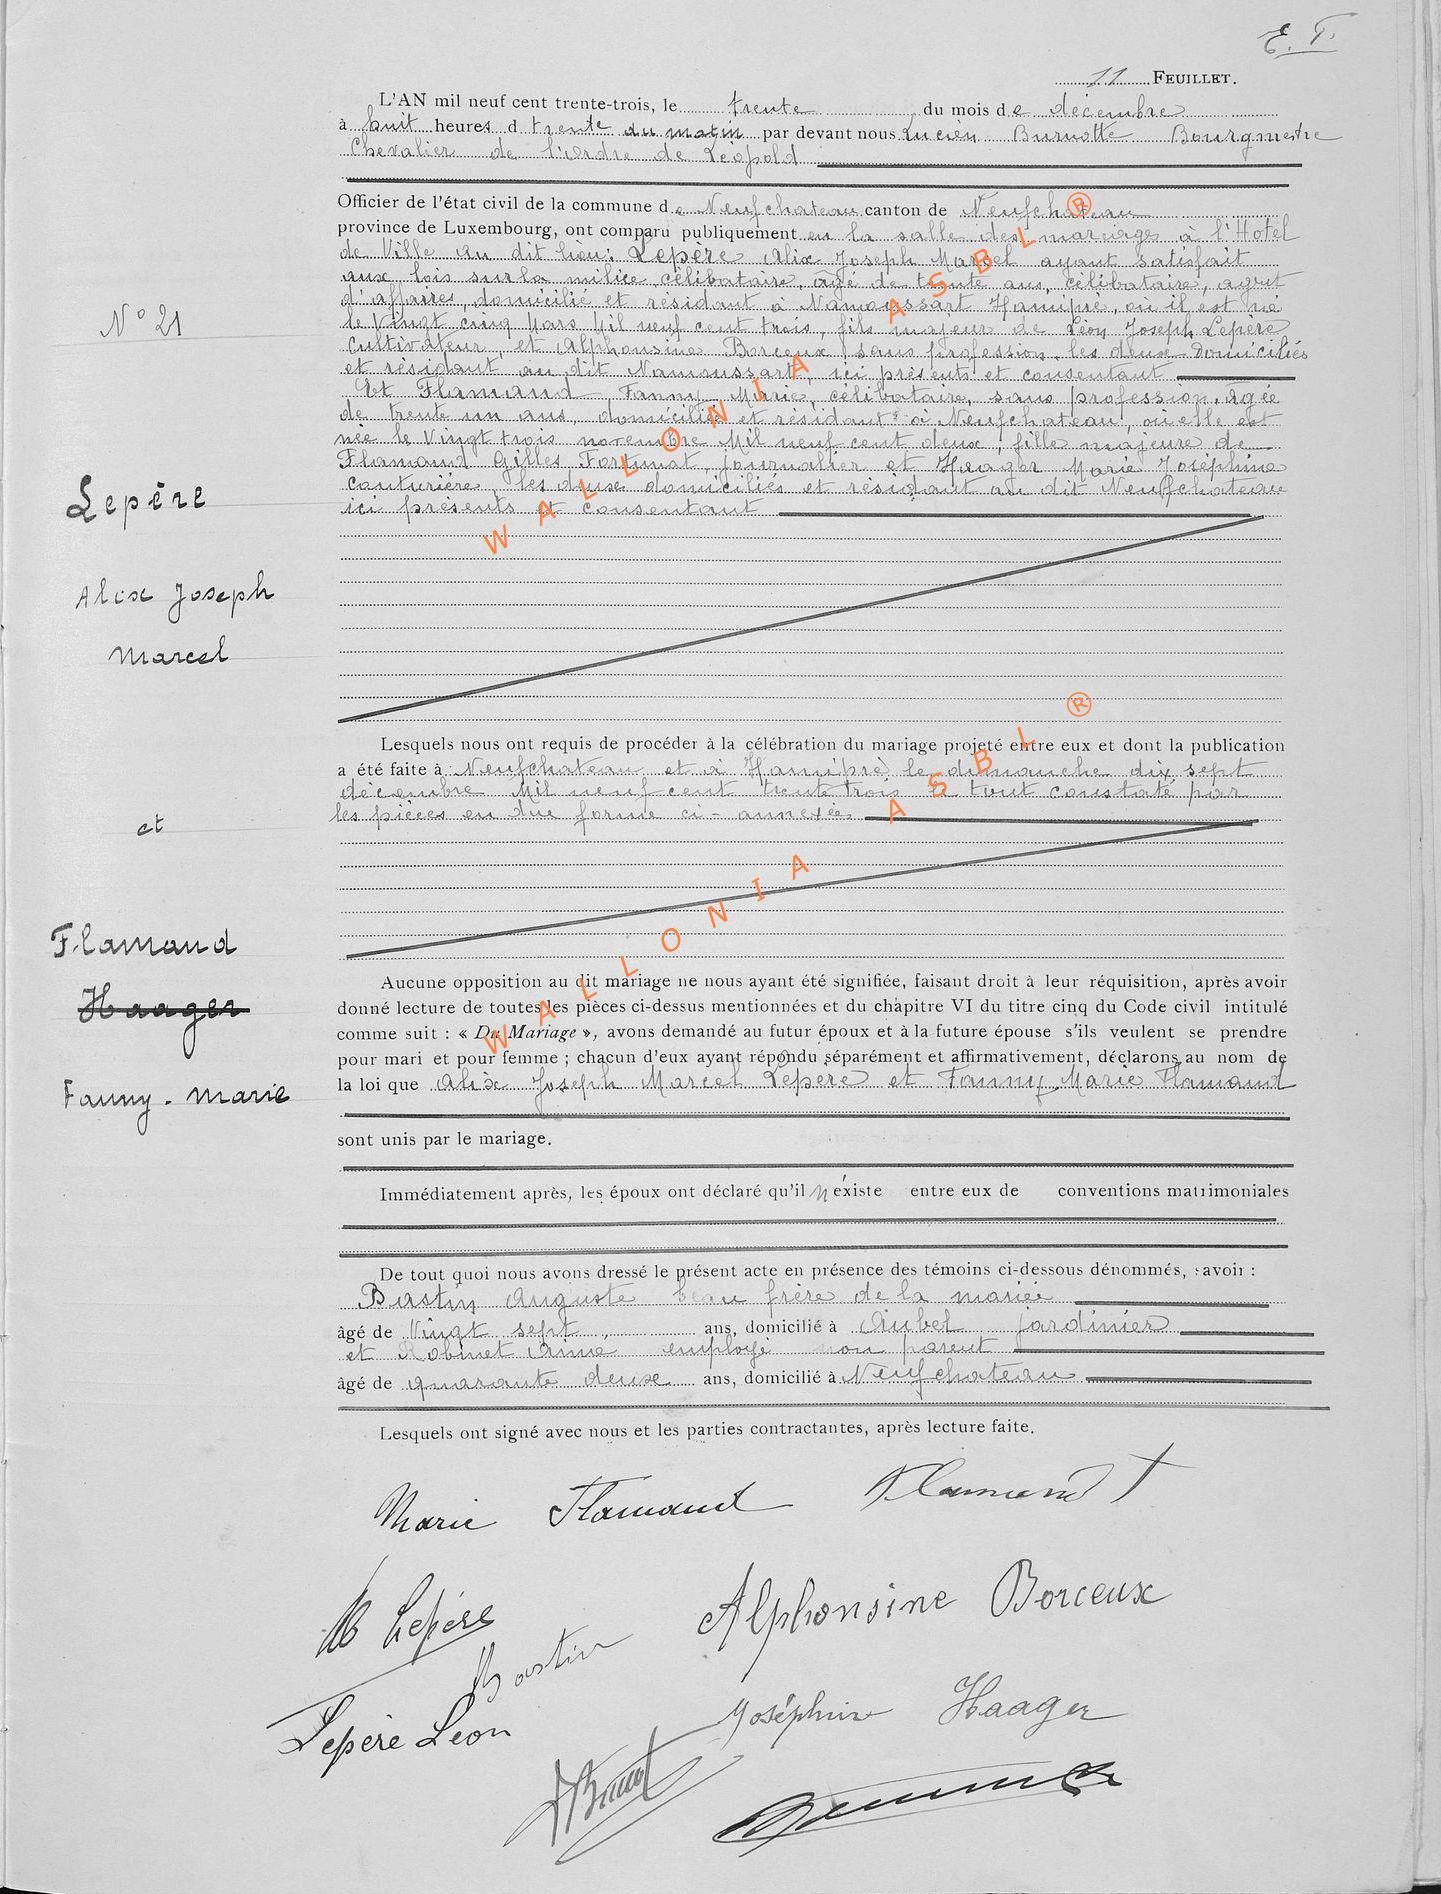 E. T.
11 FEUILLET.
L'AN mil neuf cent trente-trois, le trente du mois de décembre
à huit heures d trente du matin par devant nous Lucien Burnotte Bourgmestre
Chevalier de l'ordre de Léopold
Officier de l'état civil de la commune de Neufchateau canton de Neufchateau
province de Luxembourg, ont comparu publiquement en la salle des mariages à l'Hotel
de Ville au dit lieu: Lepère Alix Joseph Marcel ayant satisfait
aux lois sur la milice, célibataire, âgé de trente ans, célibataire, agent
d'affaires, domicilié et résidant à Namoussart Hamipré, où il est né
le Vingt cinq Mars Mil neuf cent trois, fils majeur de Léon Joseph Lepère
cultivateur, et Alphonsine Borceux, sans profession. les deux domiciliés
et résidant au dit Namoussart, ici présents et consentant
Et Flamand Fanny Marie, célibataire, sans profession, âgée
de trente un ans, domiciliée et résidant à Neufchateau, où elle est
née le Vingt trois novembre Mil neuf cent deux, fille majeure de
Flamand Gilles Fortunat, journalier et Haager Marie Joséphine
couturière, les deux domiciliés et résidant au dit Neufchateau
ici présents et consentant
Lesquels nous ont requis de procéder à la célébration du mariage projeté entre eux et dont la publication
a été faite à Neufchateau et à Hamipré le dimanche dix sept
décembre Mil neuf cent trente trois le tout constaté par
les pièces en due forme ci-annexée
Aucune opposition au dit mariage ne nous ayant été signifiée, faisant droit à leur réquisition, après avoir
donné lecture de toutes les pièces ci-dessus mentionnées et du chapitre VI du titre cinq du Code civil intitulé
comme suit : « Du Mariage », avons demandé au futur époux et à la future épouse s'ils veulent se prendre
pour mari et pour femme ; chacun d'eux ayant répondu séparément et affirmativement, déclarons au nom de
la loi que Alix Joseph Marcel Lepère et Fanny Marie Flamand
sont unis par le mariage.
Immédiatement après, les époux ont déclaré qu'il n'existe entre eux de conventions matrimoniales
De tout quoi nous avons dressé le présent acte en présence des témoins ci-dessous dénommés, savoir :
Bastin Auguste beau frère de la mariée
âgé de Vingt sept ans, domicilié à Aubel jardinier
et Robinet employé non parent
âgé de quarante deux ans, domicilié à Neufchateau
Lesquels ont signé avec nous et les parties contractantes, après lecture faite.
N° 21
Lepère
Alix Joseph
Marcel
et
Flamand
Haager
Fanny-Marie
Marie Flamand Flamand
Lepère
Alphonsine Borceux
Bastin
Lepère Léon
Joséphine Haager
WALLONIA ASBL ®
WALLONIA ASBL ®